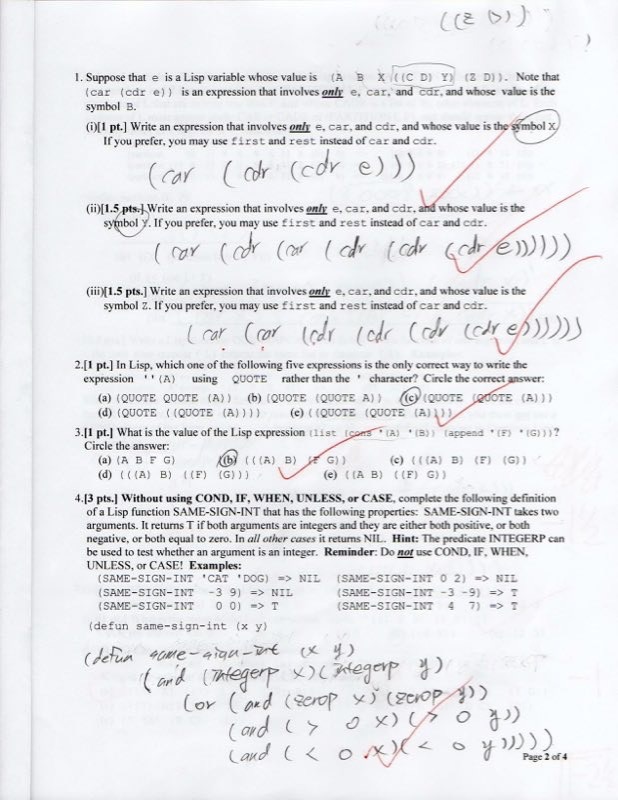 ((Z D))
)
1. Suppose that e is a Lisp variable whose value is (A B X ((C D) Y) (Z D)). Note that
(car (cdr e)) is an expression that involves only e, car, and cdr, and whose value is the
symbol B.
(i)[1 pt.] Write an expression that involves only e, car, and cdr, and whose value is the symbol X.
If you prefer, you may use first and rest instead of car and cdr.
(car (cdr (cdr e)))
(ii)[1.5 pts.] Write an expression that involves only e, car, and cdr, and whose value is the
symbol Y. If you prefer, you may use first and rest instead of car and cdr.
(car (cdr (car (cdr (cdr (cdr e))))))
(iii)[1.5 pts.] Write an expression that involves only e, car, and cdr, and whose value is the
symbol Z. If you prefer, you may use first and rest instead of car and cdr.
(car (car (cdr (cdr (cdr (cdr e))))))
2.[1 pt.] In Lisp, which one of the following five expressions is the only correct way to write the
expression ''(A) using QUOTE rather than the ' character? Circle the correct answer:
(a) (QUOTE QUOTE (A)) (b) (QUOTE (QUOTE A)) (c) (QUOTE (QUOTE (A)))
(d) (QUOTE ((QUOTE (A)))) (e) ((QUOTE (QUOTE (A))))
3.[1 pt.] What is the value of the Lisp expression (list (cons '(A) '(B)) (append '(F) '(G)))?
Circle the answer:
(a) (A B F G) (b) (((A) B) (F G)) (c) (((A) B) (F) (G))
(d) (((A) B) ((F) (G))) (e) ((A B) ((F) G))
4.[3 pts.] Without using COND, IF, WHEN, UNLESS, or CASE, complete the following definition
of a Lisp function SAME-SIGN-INT that has the following properties: SAME-SIGN-INT takes two
arguments. It returns T if both arguments are integers and they are either both positive, or both
negative, or both equal to zero. In all other cases it returns NIL. Hint: The predicate INTEGERP can
be used to test whether an argument is an integer. Reminder: Do not use COND, IF, WHEN,
UNLESS, or CASE! Examples:
(SAME-SIGN-INT 'CAT 'DOG) => NIL (SAME-SIGN-INT 0 2) => NIL
(SAME-SIGN-INT -3 9) => NIL (SAME-SIGN-INT -3 -9) => T
(SAME-SIGN-INT 0 0) => T (SAME-SIGN-INT 4 7) => T
(defun same-sign-int (x y)
(defun same-sign-int (x y)
(and (integerp x) (integerp y)
(or (and (zerop x) (zerop y))
(and (> 0 x) (> 0 y))
(and (< 0 x) (< 0 y)))))
Page 2 of 4